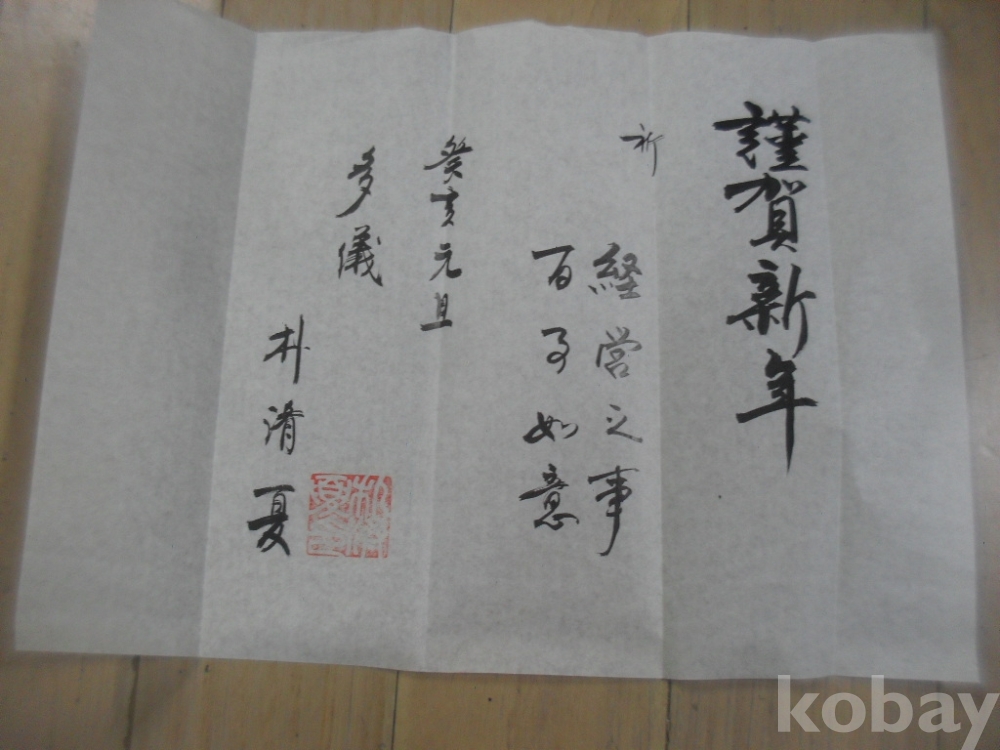 謹賀新年
祈
経営之事
百事如意
癸亥元旦
多儀
朴淸夏
kobay